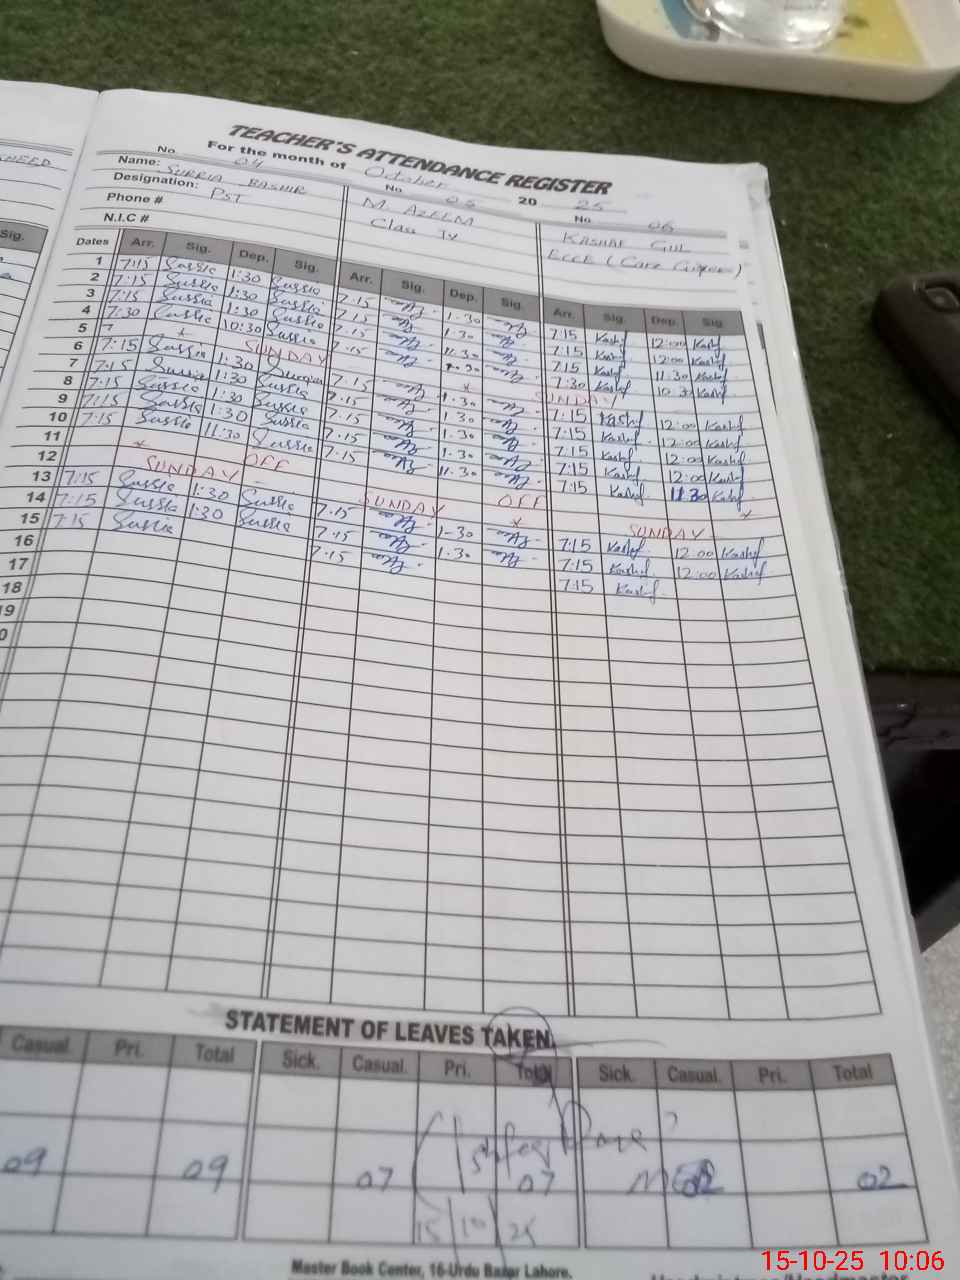 TEACHER'S ATTENDANCE REGISTER
For the month of October 2025
No. 04
Name: SURRIA BASHIR
Designation: PST
Phone #
N.I.C #
No 05
M. AZEEM
Class IV
No 06
KASHAF GUL
ECCE (Care Giver)
HEED
Sig.
Dates Arr. Sig. Dep. Sig. Arr. Sig. Dep. Sig. Arr. Sig. Dep. Sig.
1 7:15 Sussie 1:30 Sussie 7.15 1.30 7:15 Kashf 12:00 Kashf
2 7:15 Sussie 1:30 Sussie 7.15 1.30 7:15 Kashf 12:00 Kashf
3 7:15 Sussie 1:30 Sussie 7.15 11.30 7:15 Kashf 11:30 Kashf
4 7:30 Sussie 10:30 Sussie 7:30 Kashf 10:30 Kashf
5 SUNDAY SUNDAY
6 7:15 Sussie 1:30 7.15 1.30 7:15 Kashf 12:00 Kashf
7 7:15 Sussie 1:30 Sussie 7.15 1.30 7:15 Kashf 12:00 Kashf
8 7:15 Sussie 1:30 Sussie 7.15 1.30 7:15 Kashf 12:00 Kashf
9 7:15 Sussie 1:30 Sussie 7.15 1.30 7:15 Kashf 12:00 Kashf
10 7:15 Sussie 11:30 Sussie 7.15 11.30 7:15 Kashf 11:30 Kashf
11
12 SUNDAY OFF SUNDAY OFF SUNDAY
13 7:15 Sussie 1:30 Sussie 7.15 1-30 7:15 Kashf 12:00 Kashf
14 7:15 Sussie 1:30 Sussie 7.15 1.30 7:15 Kashf 12:00 Kashf
15 7:15 Sussie 7.15 7:15 Kashf
16
17
18
19
0
STATEMENT OF LEAVES TAKEN
Casual. Pri. Total Sick. Casual. Pri. Total Sick. Casual. Pri. Total
09 09 07 07 02
15/10/25
Master Book Center, 16-Urdu Bazar Lahore.
15-10-25 10:06